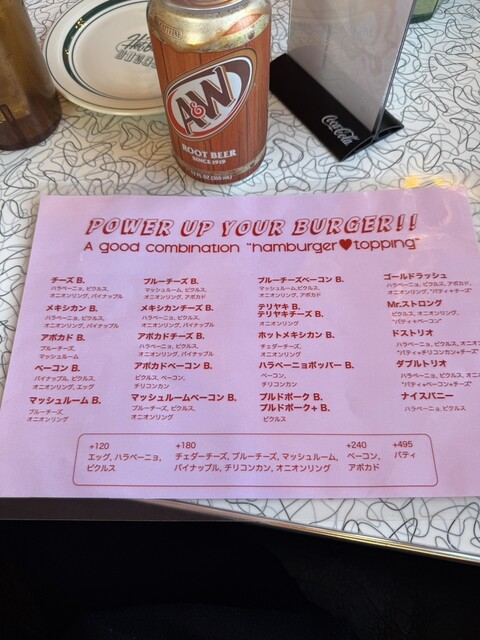 A&W
ROOT BEER
SINCE 1919
12 FL OZ (355 mL)
Coca-Cola
POWER UP YOUR BURGER!!
A good combination "hamburger♥topping"
チーズ B.
ハラペーニョ, ピクルス,
オニオンリング, パイナップル
メキシカン B.
ハラペーニョ, ピクルス,
オニオンリング, パイナップル
アボカド B.
ブルーチーズ,
マッシュルーム
ベーコン B.
パイナップル, ピクルス,
オニオンリング, エッグ
マッシュルーム B.
ブルーチーズ,
オニオンリング
ブルーチーズ B.
マッシュルーム, ピクルス,
オニオンリング, アボカド
メキシカンチーズ B.
ハラペーニョ, ピクルス,
オニオンリング, パイナップル
アボカドチーズ B.
ハラペーニョ, ピクルス,
オニオンリング, パイナップル
アボカドベーコン B.
ピクルス, ベーコン,
チリコンカン
マッシュルームベーコン B.
ブルーチーズ, ピクルス,
オニオンリング
ブルーチーズベーコン B.
マッシュルーム,ピクルス,
オニオンリング, アボカド
テリヤキ B.
テリヤキチーズ B.
オニオンリング
ホットメキシカン B.
チェダーチーズ,
オニオンリング
ハラペーニョポッパー B.
ベーコン,
チリコンカン
プルドポーク B.
プルドポーク+ B.
ピクルス
ゴールドラッシュ
ハラペーニョ, ピクルス, アボカド,
オニオンリング, "パティ+チーズ"
Mr.ストロング
ピクルス, オニオンリング,
"パティ+ベーコン"
ドストリオ
ハラペーニョ, ピクルス, オニオ
"パティ+チリコンカン+チーズ"
ダブルトリオ
ハラペーニョ, ピクルス, オニ
"パティ+ベーコン+チーズ"
ナイスバニー
ハラペーニョ, ピクルス
+120
エッグ, ハラペーニョ,
ピクルス
+180
チェダーチーズ, ブルーチーズ, マッシュルーム,
パイナップル, チリコンカン, オニオンリング
+240
ベーコン,
アボカド
+495
パティ